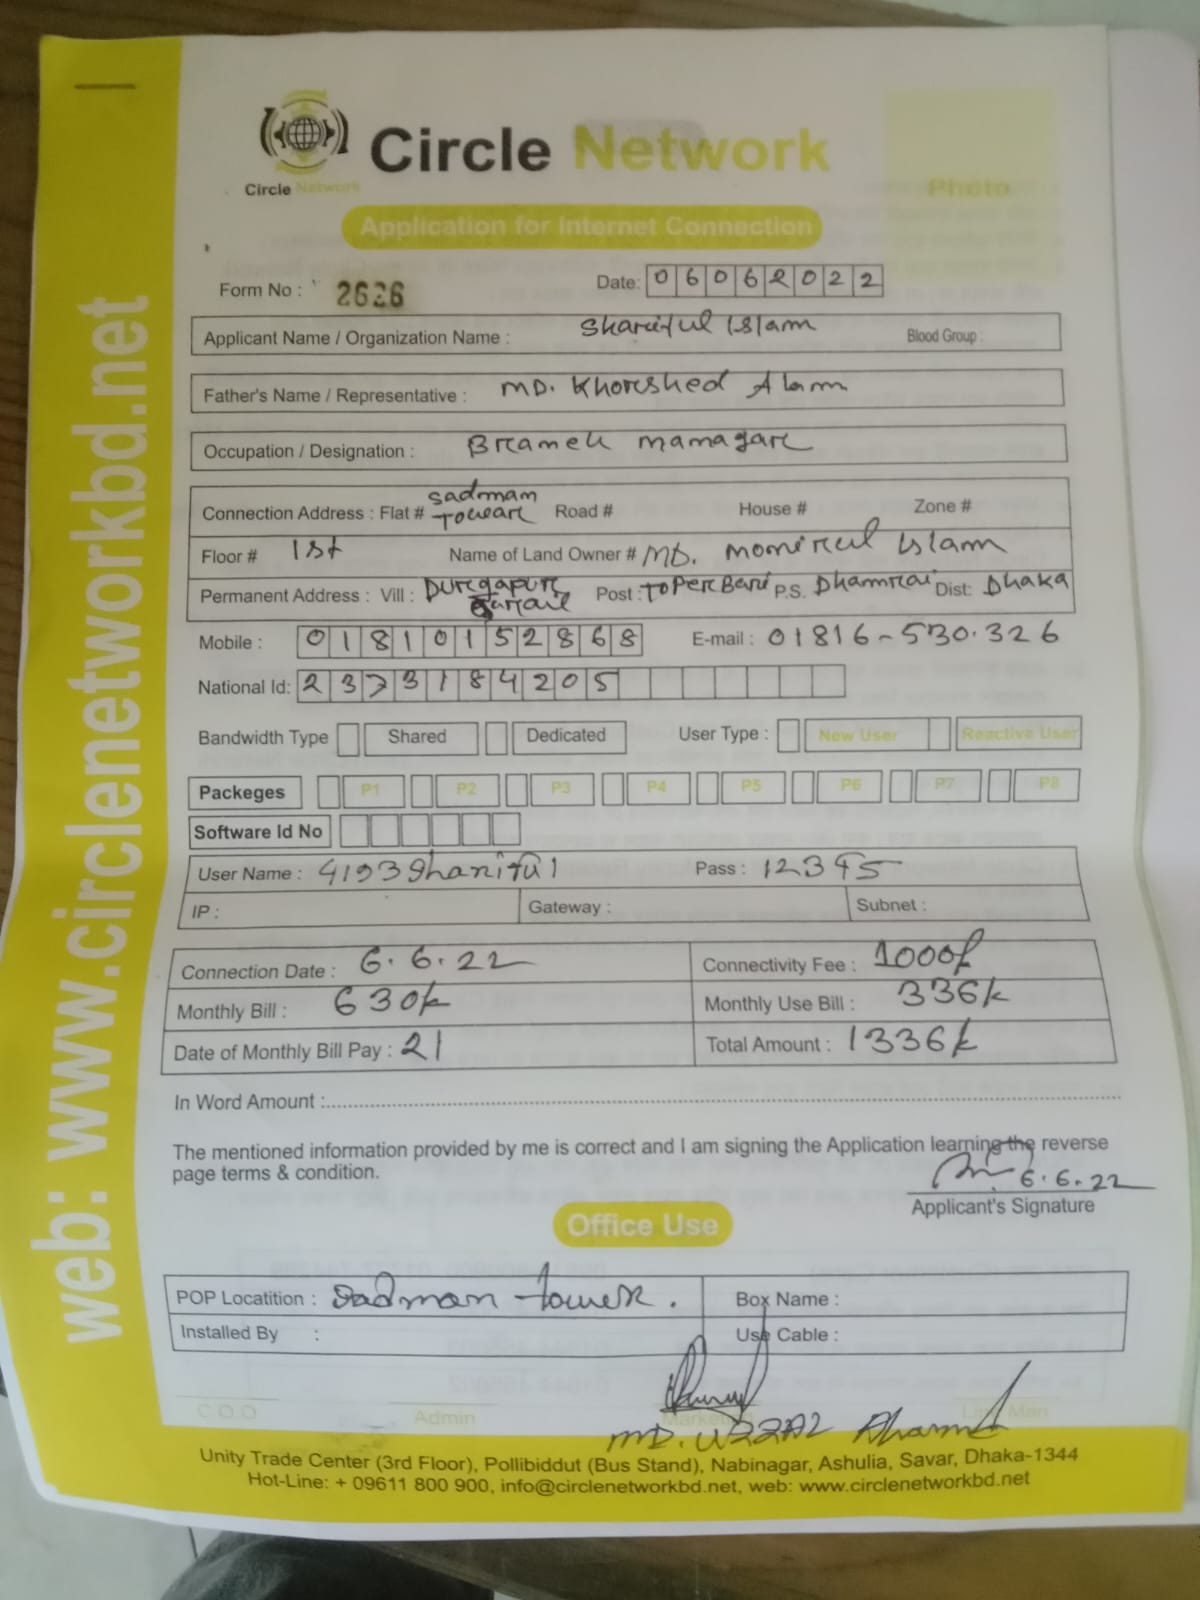 web: www.circlenetworkbd.net
Circle Network
Circle Network
Photo
Application for Internet Connection
Form No : 2626 Date: 06062022
Applicant Name / Organization Name : Shariful Islam Blood Group :
Father's Name / Representative : MD. Khoreshed Alam
Occupation / Designation :
Connection Address : Flat # Sadmam Road # House # Zone #
Floor # 1st Name of Land Owner # MD. Islam
Permanent Address : Vill : Post : P.S. Dhamrai Dist: Dhaka
Mobile : 01810152868 E-mail : 01816-530.326
National Id: 2373184205
Bandwidth Type Shared Dedicated User Type : New User Reactive User
Packeges P1 P2 P3 P4 P5 P6 P7 P8
Software Id No
User Name : Pass : 12345
IP : Gateway : Subnet :
Connection Date : 6.6.22 Connectivity Fee : 1000/
Monthly Bill : 630/ Monthly Use Bill : 336/
Date of Monthly Bill Pay : 21 Total Amount : 1336/
In Word Amount :
The mentioned information provided by me is correct and I am signing the Application learning the reverse
page terms & condition.
6.6.22
Applicant's Signature
Office Use
POP Locatition : Sadman tower. Box Name :
Installed By : Use Cable :
C.O.O Admin Marketing Line Man
Unity Trade Center (3rd Floor), Pollibiddut (Bus Stand), Nabinagar, Ashulia, Savar, Dhaka-1344
Hot-Line: + 09611 800 900, info@circlenetworkbd.net, web: www.circlenetworkbd.net